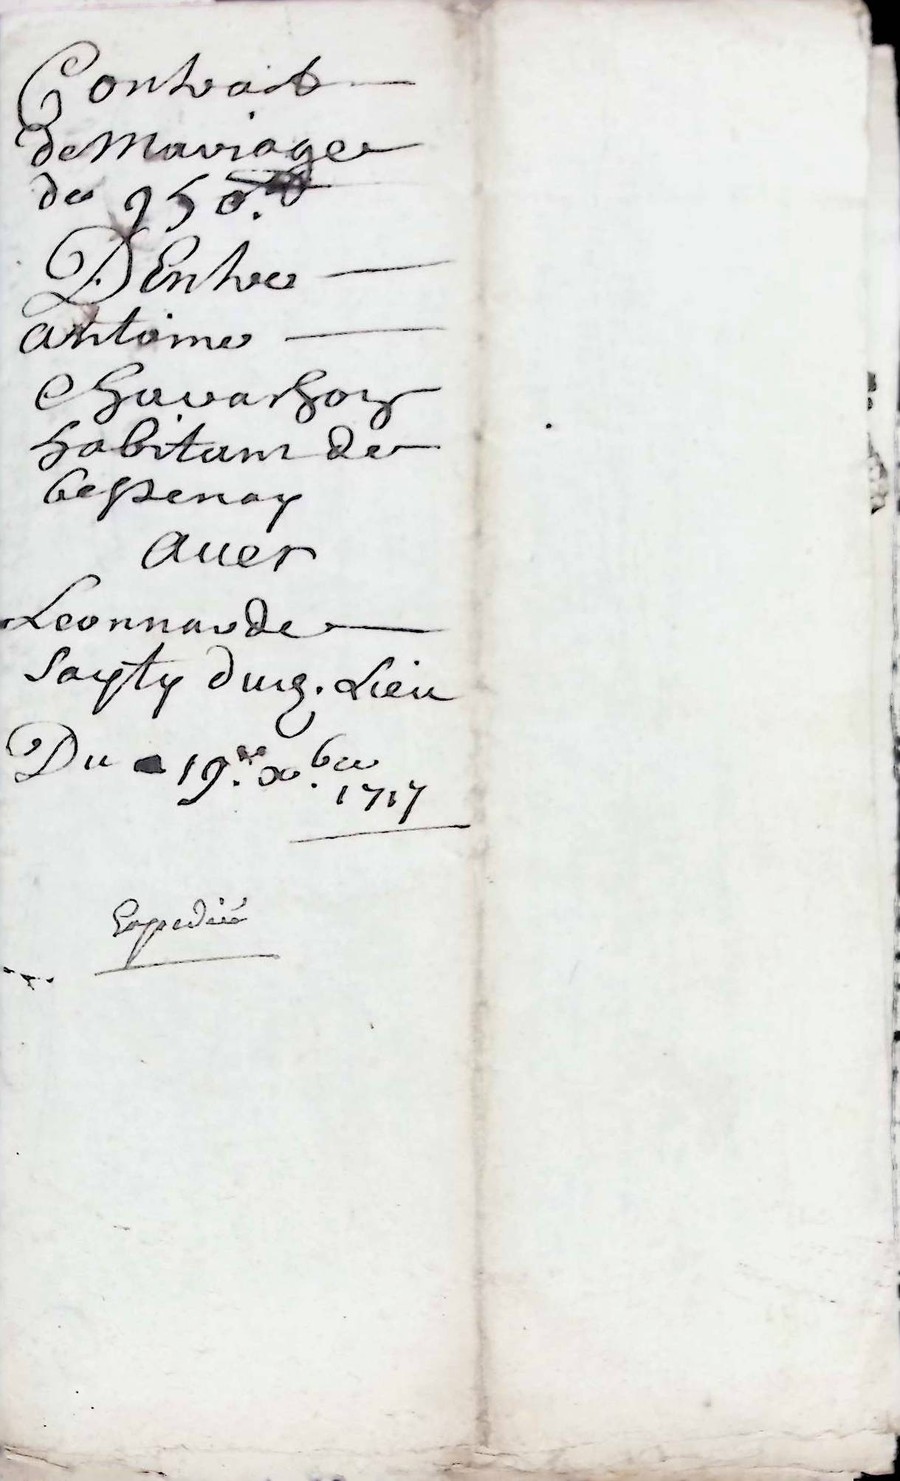 Contrat
de Mariage
de 950.ᵗᵗ
D'Entre
antoine
Chavanhon
habitant de
bessenay
avec
Leonnarde
Soyty dud. Lieu
Du 19.ᵐᵉ xᵇʳᵉ
1717
Expedié